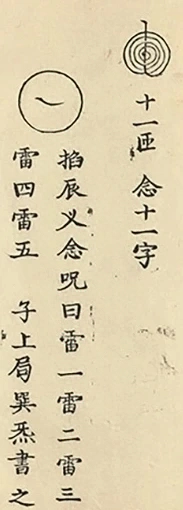 十一匝 念十一字
掐辰文念咒曰雷一雷二雷三
雷四雷五 子上局巽炁書之